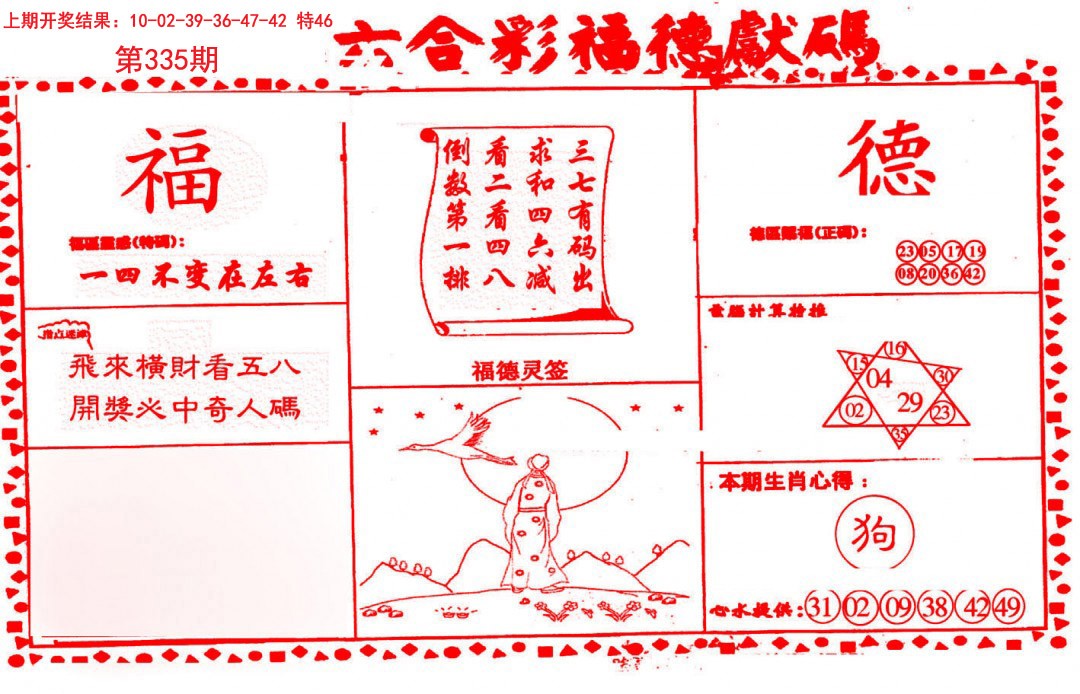 上期开奖结果：10-02-39-36-47-42 特46
第335期
六合彩福德獻碼
福
福區靈感(特碼)：
一四不变在左右
飛來橫財看五八
開獎必中奇人碼
三七有码出
求和四六减
看二看四八
倒数第一排
福德灵签
德
德區賜福(正碼)：
23 05 17 19
08 20 36 42
電腦計算粉推
16
15
04
30
02
29
23
35
本期生肖心得：
狗
心水提供：31 02 09 38 42 49